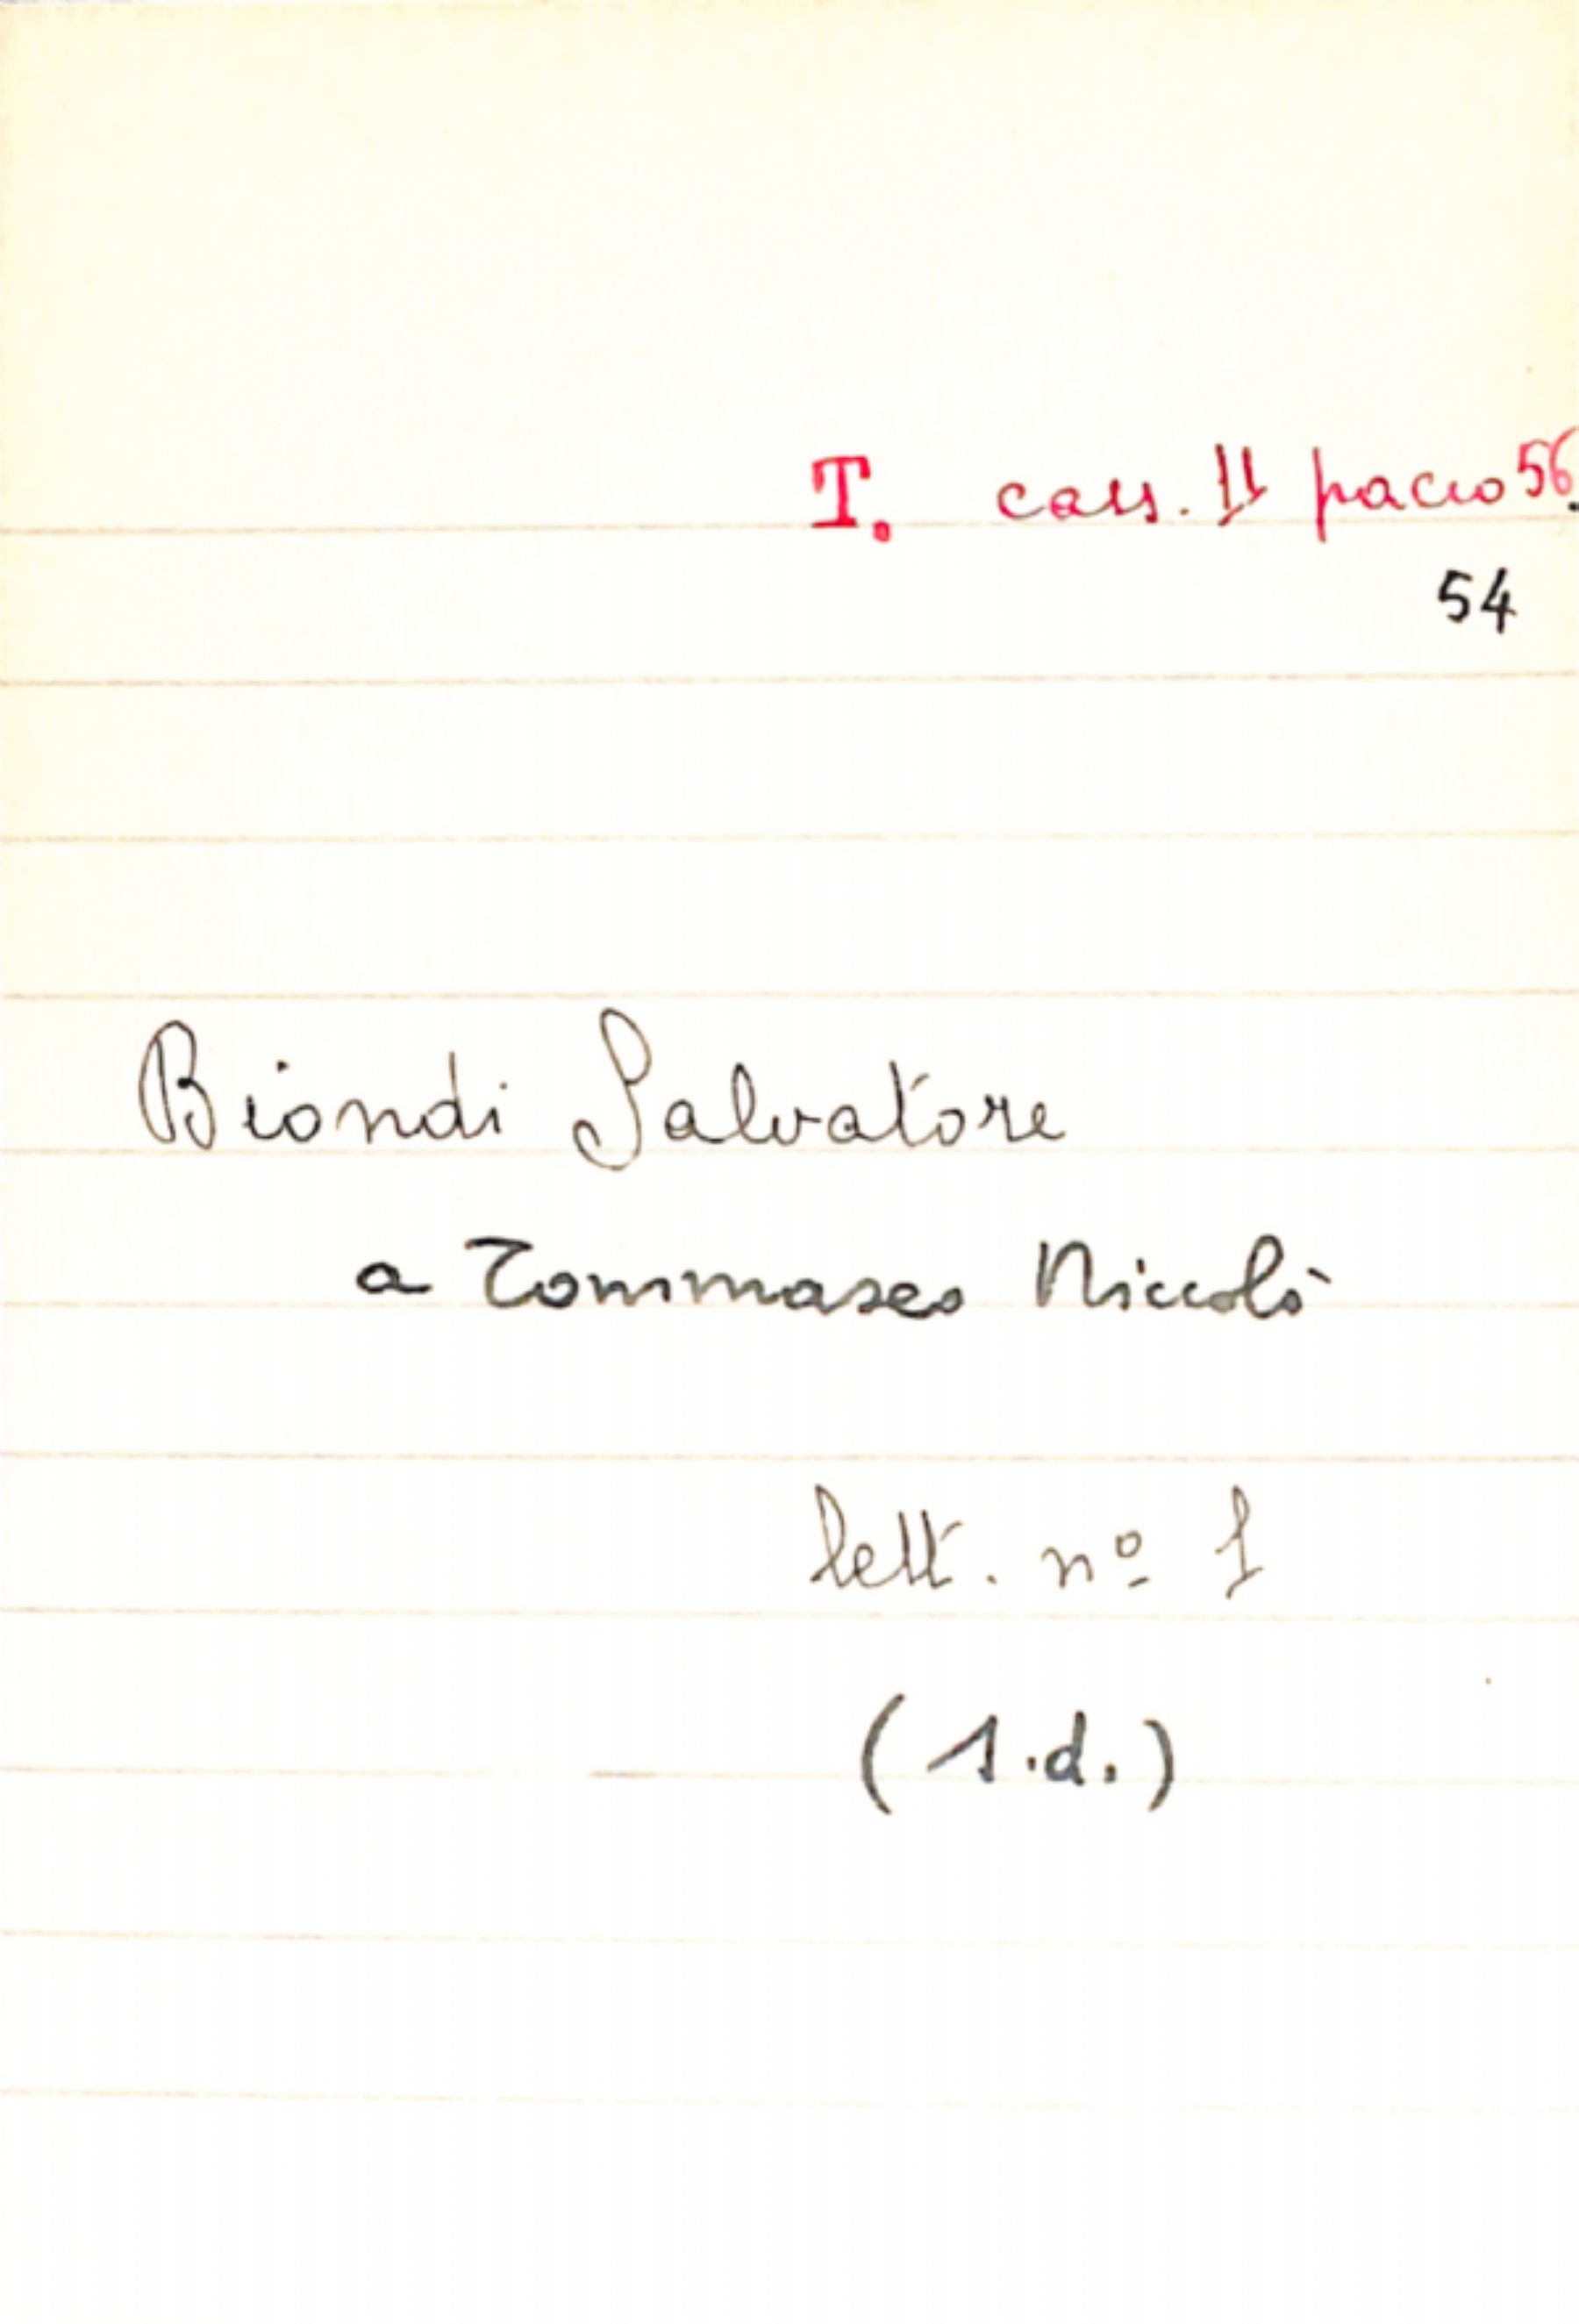 T. cass. 11 pacco 56.
54
Biondi Salvatore
a Tommaseo Niccolò
lett. nº 1
(s.d.)